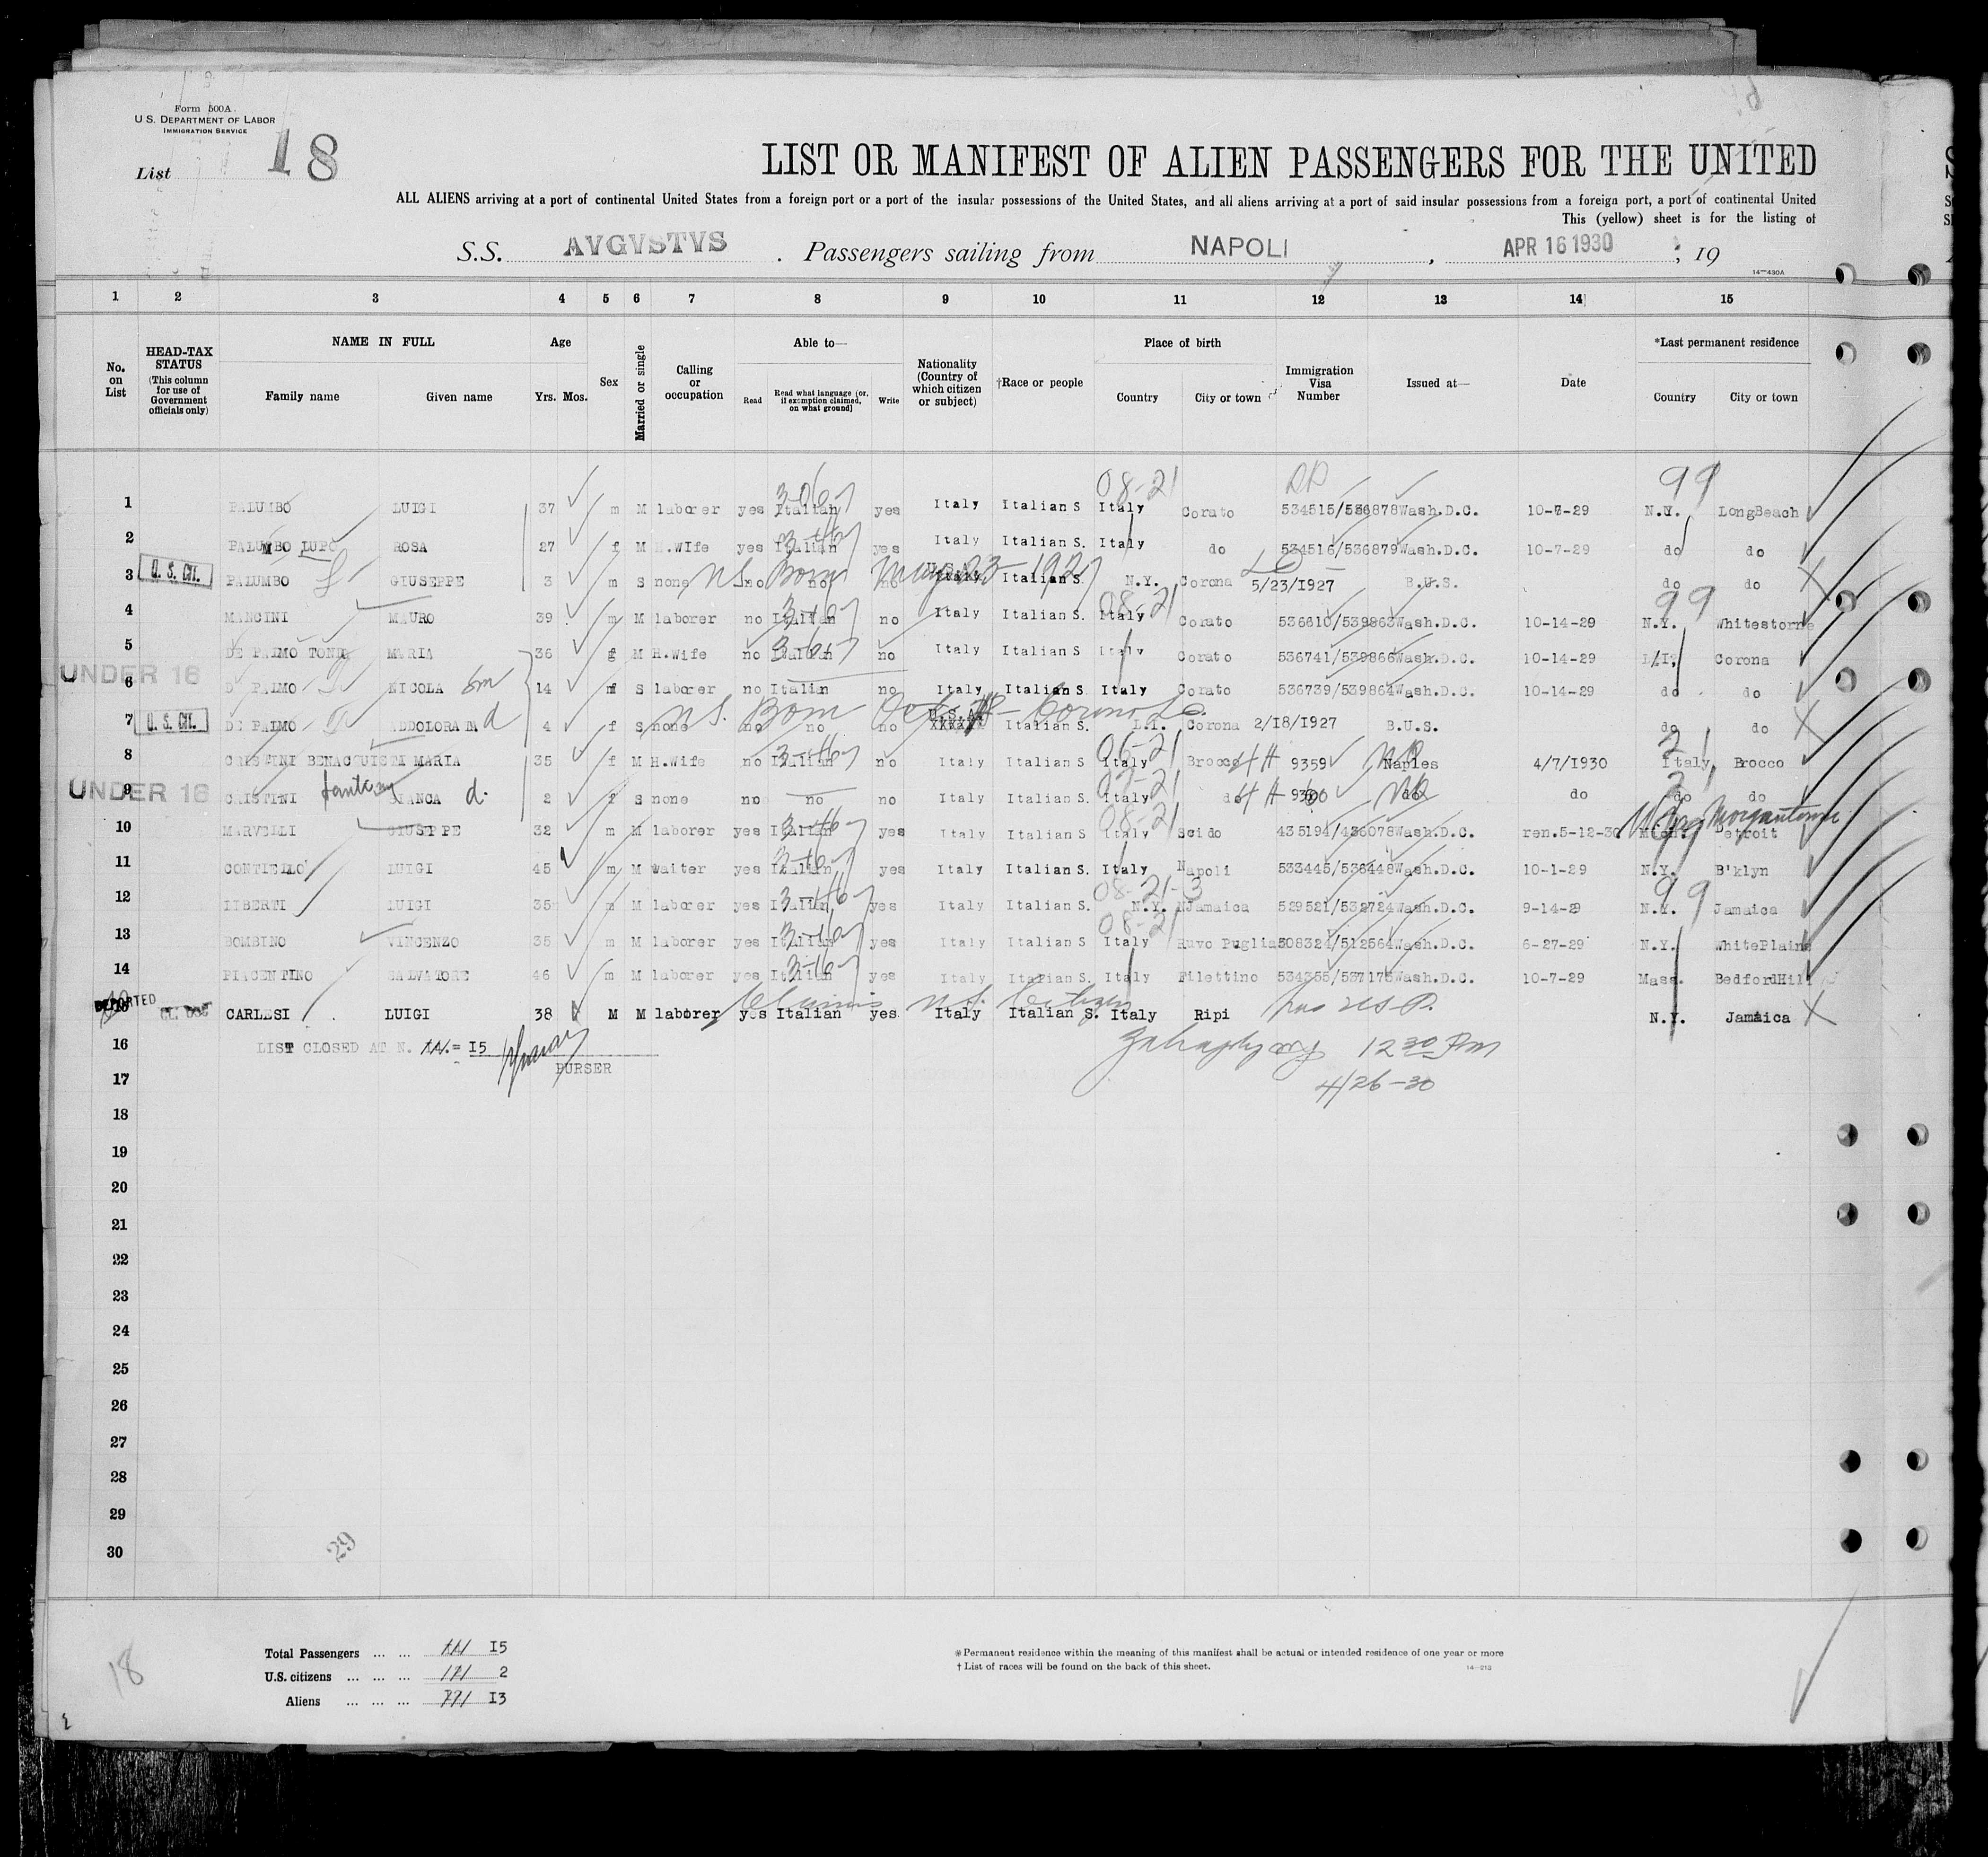 Form 500A
U.S. DEPARTMENT OF LABOR
IMMIGRATION SERVICE
List 18
LIST OR MANIFEST OF ALIEN PASSENGERS FOR THE UNITED
ALL ALIENS arriving at a port of continental United States from a foreign port or a port of the insular possessions of the United States, and all aliens arriving at a port of said insular possessions from a foreign port, a port of continental United
This (yellow) sheet is for the listing of
S.S. AVGVSTVS . Passengers sailing from NAPOLI , APR 16 1930 ; 19
14—430A
1 2 3 4 5 6 7 8 9 10 11 12 13 14 15
No. on List
HEAD-TAX STATUS (This column for use of Government officials only)
NAME IN FULL Family name Given name
Age Yrs. Mos.
Sex
Married or single
Calling or occupation
Able to— Read Read what language (or, if exemption claimed, on what ground) Write
Nationality (Country of which citizen or subject)
†Race or people
Place of birth Country City or town
Immigration Visa Number
Issued at—
Date
*Last permanent residence Country City or town
3-067 08-21 99
1 PALUMBO LUIGI 37 m M laborer yes Italian yes Italy Italian S Italy Corato 534515/536878 Wash.D.C. 10-7-29 N.Y. LongBeach
2 PALUMBO LUPO ROSA 27 f M H.WIfe yes Italian yes Italy Italian S. Italy do 534516/536879 Wash.D.C. 10-7-29 do do
U.S. CH. US. Born May 23-1927
3 PALUMBO GIUSEPPE 3 m S none no no no U.S.A. Italian S. N.Y. Corona 5/23/1927 B.U.S. do do X
08-21 99
4 MANCINI MAURO 39 m M laborer no Italian no Italy Italian S Italy Corato 536610/539863 Wash.D.C. 10-14-29 N.Y. Whitestorne
5 DE PALMO TONDI MARIA 36 f M H.Wife no Italian no Italy Italian S Italy Corato 536741/539866 Wash.D.C. 10-14-29 L.I. Corona
UNDER 16
6 DE PALMO NICOLA 14 m S laborer no Italian no Italy Italian S Italy Corato 536739/539864 Wash.D.C. 10-14-29 do do
U.S. CH. US. Born Corona
7 DE PALMO ADDOLORATA d 4 f S none no no no U.S.A. Italian S. L.I. Corona 2/18/1927 B.U.S. do do X
06-21 21
8 CRISTINI BENACQUISTI MARIA 35 f M H.Wife no Italian no Italy Italian S Italy Brocco 9359 Naples 4/7/1930 Italy Brocco
UNDER 16 07-21
9 CRISTINI BIANCA d. 2 f S none no no no Italy Italian S Italy do 9360 do do do do
08-21 Morgantown
10 MARVELLI GIUSEPPE 32 m M laborer yes Italian yes Italy Italian S Italy Scido 435194/436078 Wash.D.C. ren.5-12-30 Mich. Detroit
11 CONTIELLO LUIGI 45 m M waiter yes Italian yes Italy Italian S. Italy Napoli 533445/536448 Wash.D.C. 10-1-29 N.Y. B'klyn
08-21-3 99
12 LIBERTI LUIGI 35 m M laborer yes Italian yes Italy Italian S. N.Y. Jamaica 529521/532724 Wash.D.C. 9-14-29 N.Y. Jamaica
08-21
13 BOMBINO VINCENZO 35 m M laborer yes Italian yes Italy Italian S Italy Ruvo Puglia 508324/512564 Wash.D.C. 6-27-29 N.Y. WhitePlains
14 PIACENTINO SALVATORE 46 m M laborer yes Italian yes Italy Italian S. Italy Filettino 534355/537175 Wash.D.C. 10-7-29 Mass. BedfordHill
DEPORTED Claims U.S. Citizen has U.S.P.
15 CARLESI LUIGI 38 M M laborer yes Italian yes Italy Italian S. Italy Ripi N.Y. Jamaica X
16 LIST CLOSED AT N. I5 12 30 Pm
PURSER
17 4/26-30
18
19
20
21
22
23
24
25
26
27
28
29
30
29
Total Passengers ... ... I5
U.S. citizens ... ... ... 2
Aliens ... ... ... I3
18
*Permanent residence within the meaning of this manifest shall be actual or intended residence of one year or more
† List of races will be found on the back of this sheet.
14—213